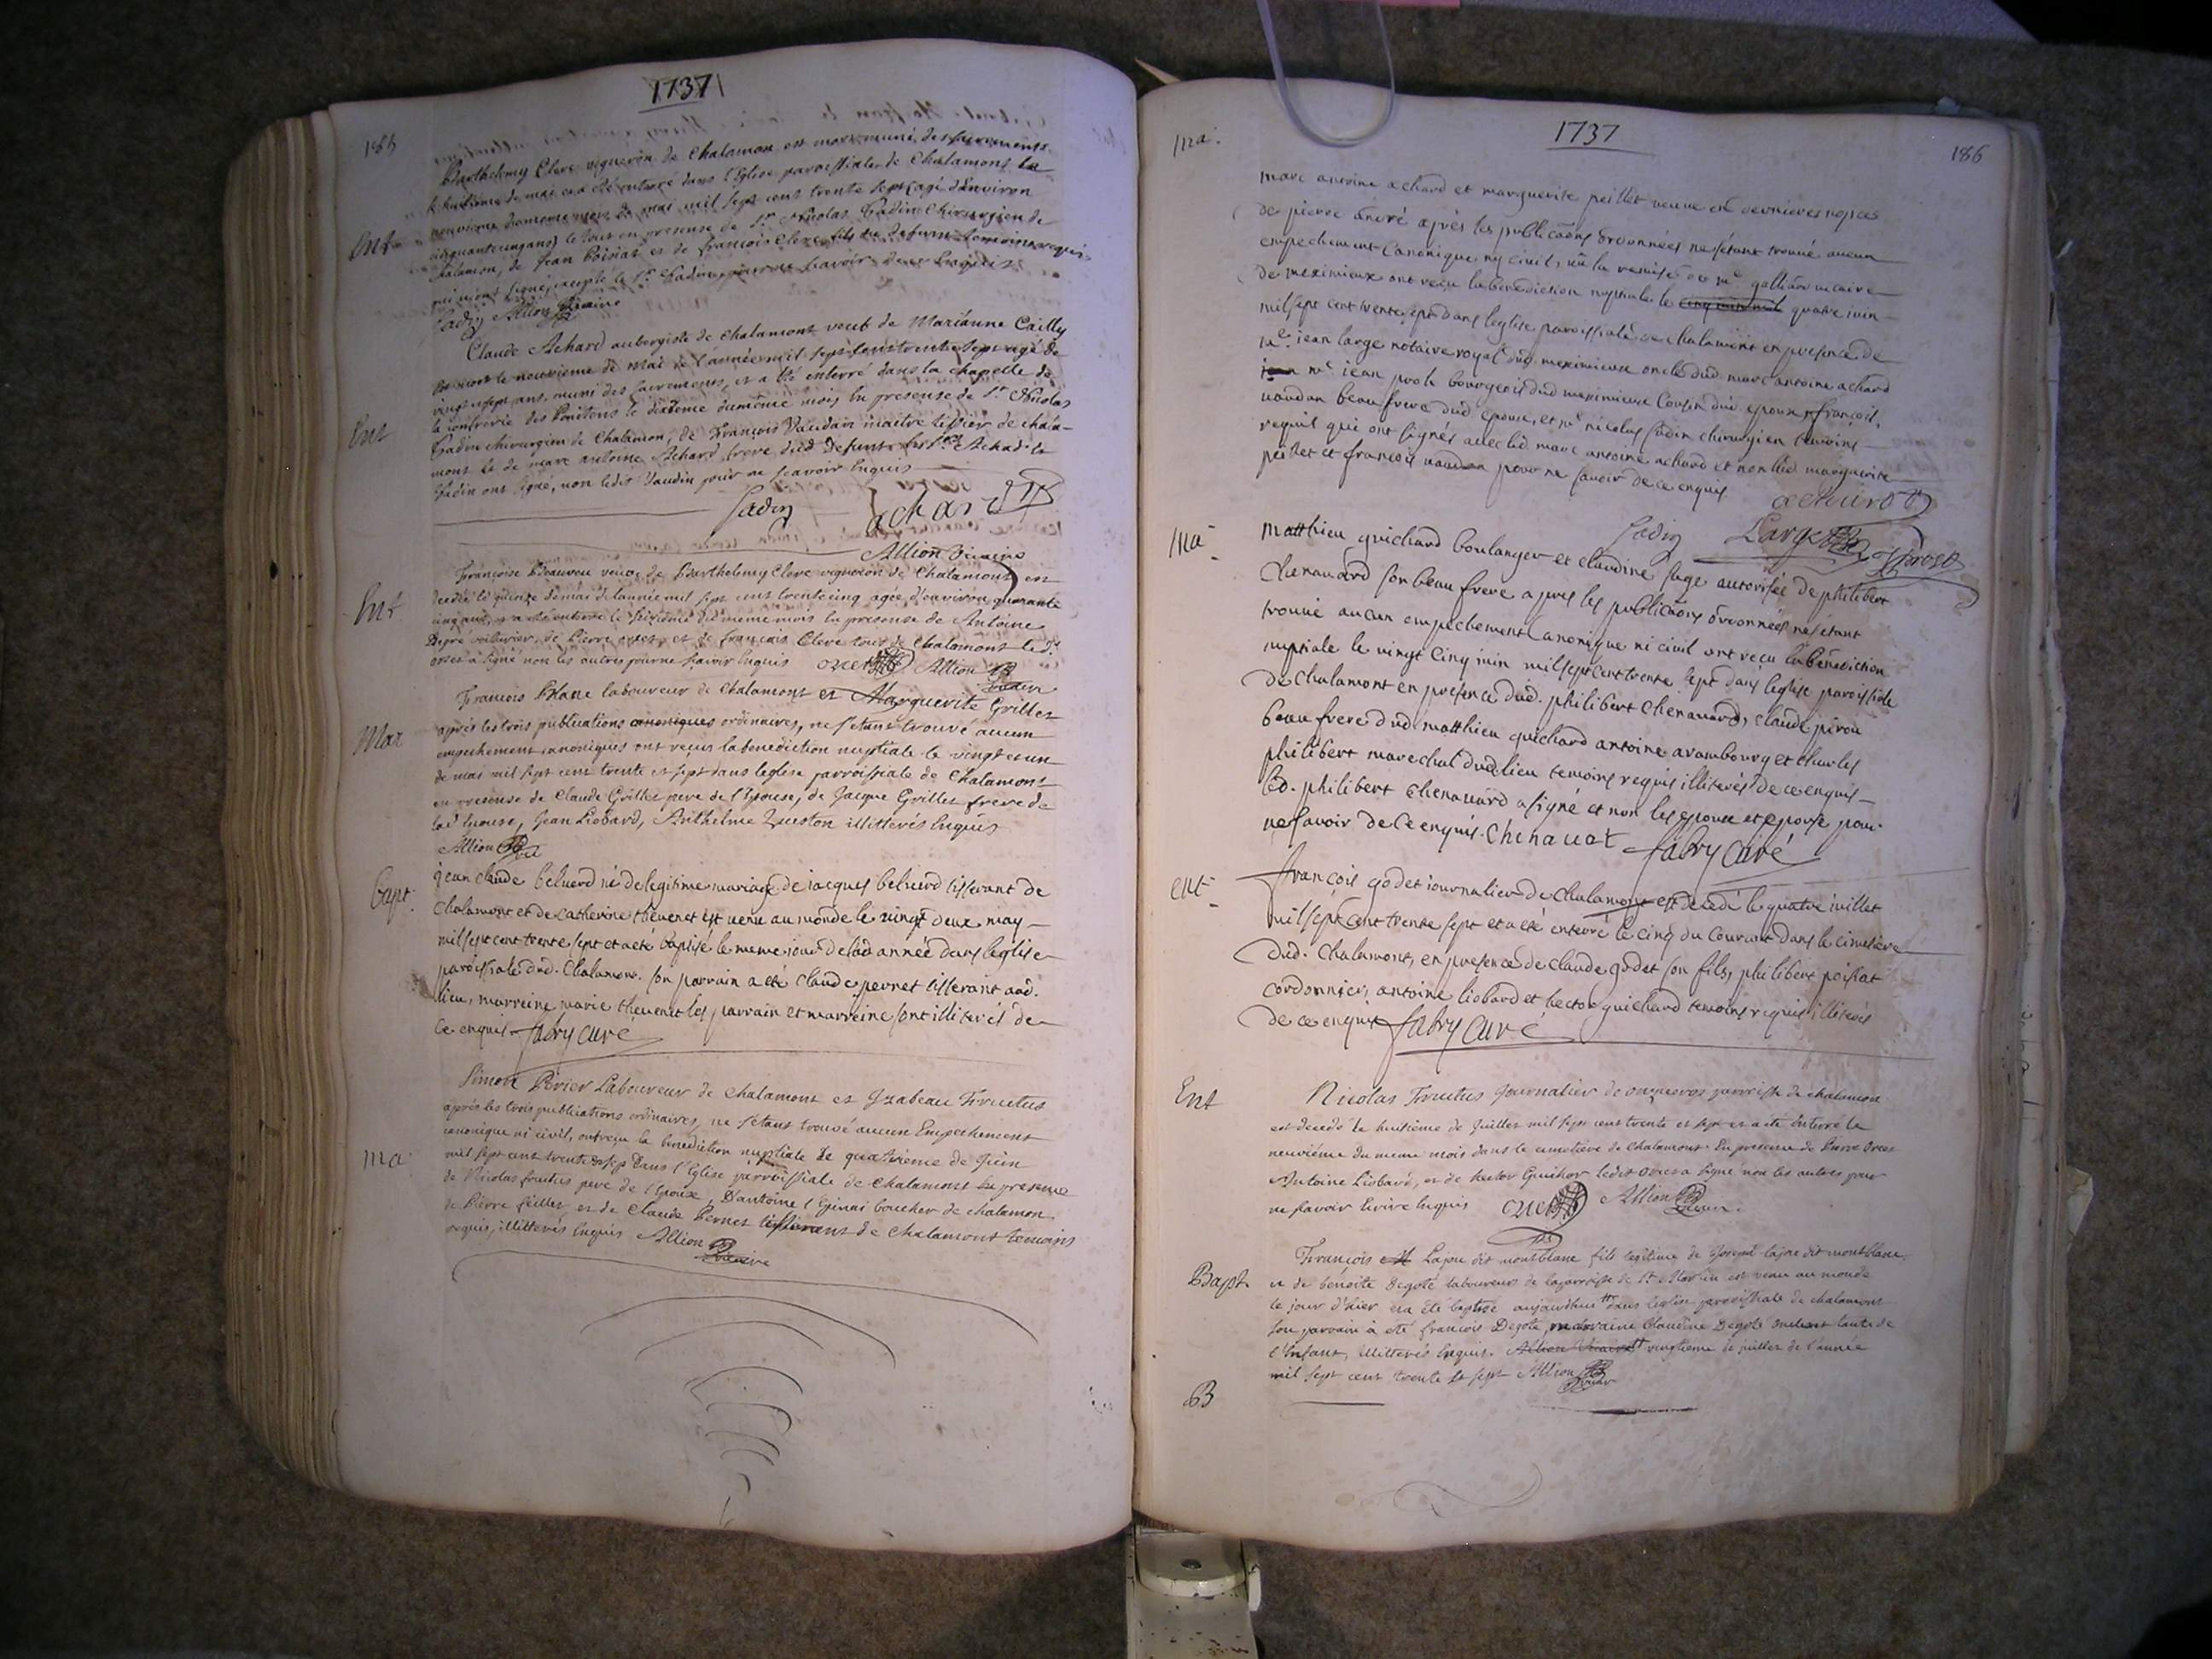 1737
185
Ent
Barthelemy Clerc vigneron de Chalamon est mort muni des sacrements
le huitieme de mai et a été enterré dans l'Eglise parroissiale de Chalamont le
neuvieme du meme mois de mai mil sept cens trente sept agé d'Environ
cinquante cinq ans, le tout en presense de Sr Nicolas Gadin Chirurgien de
Chalamon, de Jean Poisiat et de francois Clerc fils du defunt temoins requis
qui n'ont signé, excepté le Sr Gadin, pour ne scavoir de ce Enquis
Gadin Allion vicaire
Ent
Claude Achard aubergiste de Chalamont veuf de Marianne Cailly
est mort le neuvieme de Mai de l'année mil sept cens trente sept agé de
vingt sept ans, muni des sacrements, et a été enterré dans la chapelle de
la confrerie des Penitens le dixieme du même mois En presense de Sr Nicolas
Gadin chirurgien de Chalamon, de François Vaudan maitre tissier de chala-
mont et de marc antoine Achard frere dud Defunt les Srs Achad et
Gadin ont signé, non ledit Vaudin pour ne scavoir Enquis
Gadin achard
Allion vicaire
Ent
Françoise Beauveu veuve de Barthelemy Clerc vigneron de Chalamont est
decedée le quinze de mai de l'année mil sept cens trente cinq agée d'environ quarante
cinq ans, et a été enterrée le seizième du meme mois En presense de Antoine
Depré voiturier, de Pierre orcet et de françois Clerc tous de Chalamont led Sr
orcet a signé non les autres pour ne scavoir Enquis orcet Allion vicaire
Mar
François Blanc laboureur de Chalamont et Marguerite Grillet
après les trois publications canoniques ordinaires, ne s'etant trouvé aucun
empechement canoniques ont reçus la benediction nuptiale le vingt et un
de mai mil sept cens trente et sept dans leglise parroissiale de Chalamont
en presense de Claude Grillet pere de l'Epouse, de Jacque Grillet frere de
lad Epouse, Jean Liobard, Anthelme Queston illitterés Enquis
Allion vic
Bapt.
jean claude beluerd né de legitime mariage de iacques beluerd tisserant de
Chalamont et de catherine thevenet est venu au monde le vingt deux may
mil sept cent trente sept et a eté baptisé le meme iour de lad année dans leglise
paroissiale dud. Chalamont. son parrain a eté claude pernet tisserant aud.
lieu, marreine marie thevenet les parrain et marreine sont illiterés de
ce enquis fabry curé
ma
Simon Périer Laboureur de Chalamont et Izabeau Fructus
après les trois publications ordinaires, ne s'etant trouvé aucun Empechement
canonique ni civil, ont reçu la benediction nuptiale le quatrieme de Juin
mil sept cens trente et sept dans l'Eglise parroissiale de Chalamont En presense
de Nicolas fructus pere de l'Epouse, D'antoine l'Epinai boucher de chalamon
de Pierre feillet, et de Claude Pernet tisserans de Chalamont temoins
requis, illitterés Enquis Allion vicaire
1737
186
ma.
marc antoine achard et marguerite peillet veuve en dernieres nopces
de pierre andré après les publicãons ordonnées ne s'étant trouvé aucun
empechement canonique ny civil, vu la remise de mre galliãn vicaire
de meximieux ont reçu la benediction nuptiale le quatre iuin
mil sept cent trente sept dans leglise paroissiale de chalamont en presence de
me. iean large notaire royal dud meximieux oncle dud. marc antoine achard
mr iean prost bourgeois dud meximieux cousin dud epoux, françois
vaudan beau frere dud epoux, et mr nicolas Gadin chirurgien temoins
requis qui ont signés avec led marc antoine achard et non lad marguerite
peillet et françois vaudan pour ne savoir de ce enquis achard
Gadin Large Prost
ma
matthieu guichard boulanger et claudine sage autorisée de philibert
Chenavard son beau frere apres les publicãons ordonnées ne s'étant
trouvé aucun empechement canonique ni civil ont reçu la bénédiction
nuptiale le vingt cinq iuin mil sept cent trente sept dans leglise paroissiale
de Chalamont en presence dud. philibert Chenavard, claude pirou
beau frere dud matthieu guichard antoine arambourg et charles
philibert marechal dud lieu temoins requis illiterés de ce enquis
led. philibert Chenavard a signé et non les epoux et epouse pour
ne savoir de ce enquis. Chenavat fabry Curé
ent
françois godet iournalier de Chalamont est decedé le quatre iuillet
mil sept cent trente sept et a eté enterré le cinq du courant dans le cimetière
dud. Chalamont, en presence de claude godet son fils, philibert poisiat
cordonnier, antoine liobard et hector guichard temoins requis illiterés
de ce enquis fabry curé
Ent
Nicolas Fructus Journalier de parroisse de chalamon
est decedé le huitième de Juillet mil sept cens trente et sept et a eté Enterré le
neuviéme du meme mois dans le cimetière de Chalamont. En presense de Pierre Orcet
Antoine Liobard, et de hector Guichar ledit orcet a signé non les autres pour
ne savoir Ecrire Enquis orcet Allion vicaire.
Bapt
François Lajou dit montblanc fils legitime de Joseph lajou dit montblanc
et de benoite Degoté laboureurs de la parroisse de St Martin est venu au monde
le jour d'hier et a été baptisé aujourdhui dans leglise parroissiale de chalamont
son parrain à eté francois Degoté, marraine Claudine Degoté tante de
l'Enfant, illitterés Enquis. Allion vicaire vingtieme de juillet de l'année
mil sept cens trente et sept Allion vicaire
B